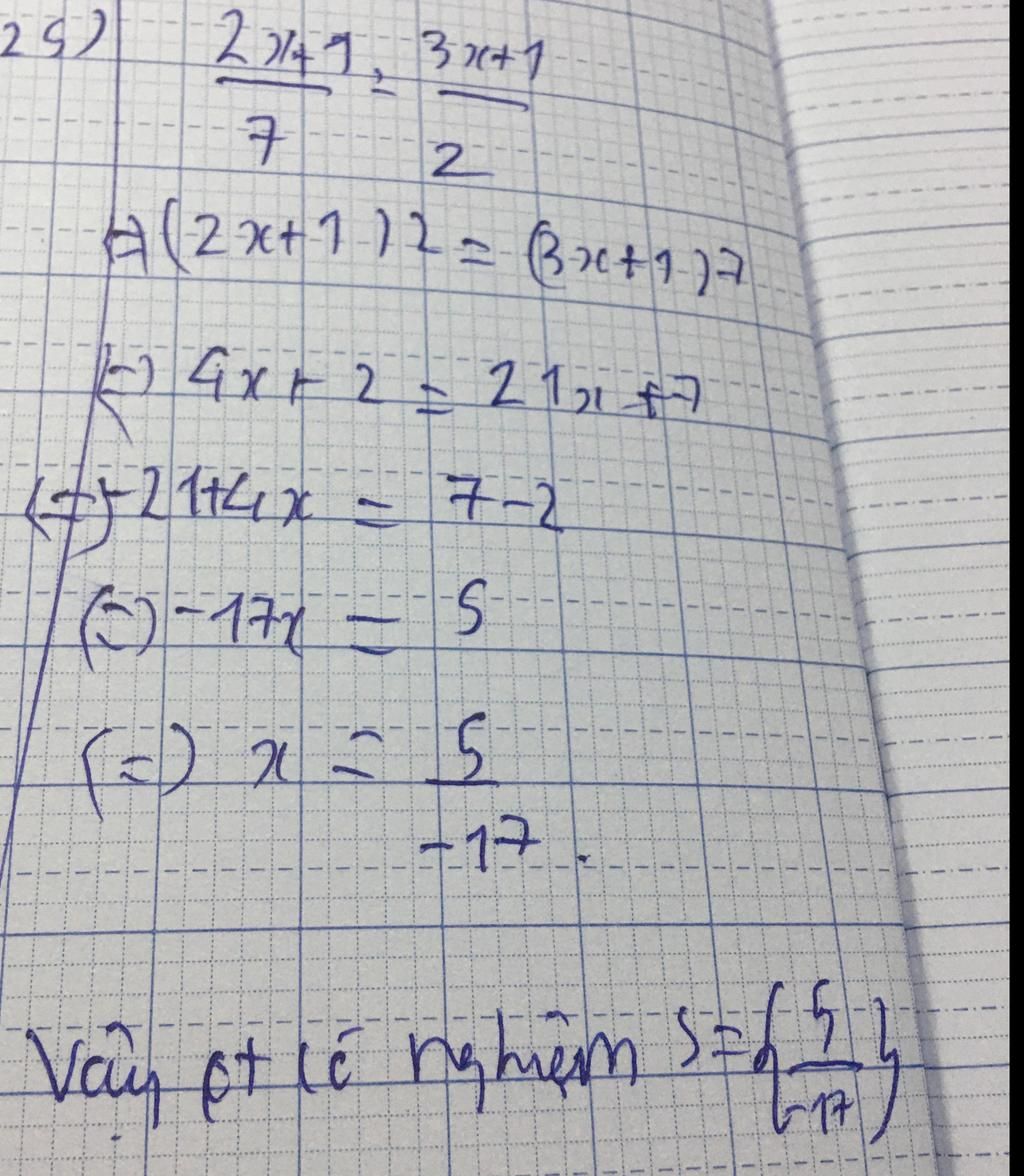 25) (2x+1)/7 = (3x+1)/2
<=> (2x+1)2 = (3x+1)7
<=> 4x+2 = 21x+7
<=> -21+4x = 7-2
<=> -17x = 5
<=> x = 5/-17.
Vậy pt có nghiệm S={5/-17}